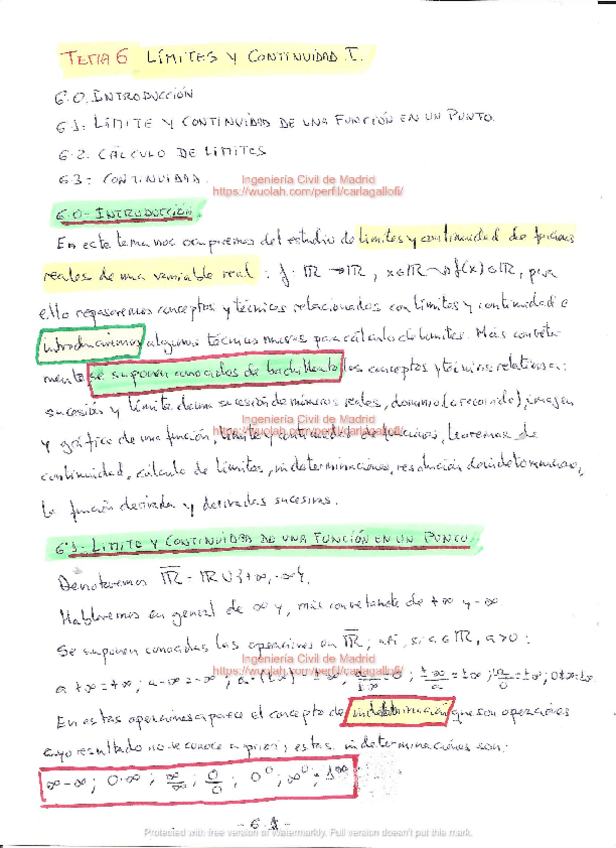 TEMA 6 LÍMITES Y CONTINUIDAD I.
6.0. INTRODUCCIÓN
6.1. LÍMITE Y CONTINUIDAD DE UNA FUNCIÓN EN UN PUNTO.
6.2. CÁLCULO DE LÍMITES
6.3- CONTINUIDAD.
Ingeniería Civil de Madrid
https://wuolah.com/perfil/carlagallofi/
6.0- INTRODUCCIÓN.
En este tema nos ocuparemos del estudio de límites y continuidad de funciones
reales de una variable real : f: ℝ → ℝ, x∈ℝ → f(x)∈ℝ, para
ello repasaremos conceptos y técnicas relacionados con límites y continuidad e
introduciremos algunas técnicas nuevas para cálculo de límites. Más concreta-
mente se suponen conocidos de bachillerato los conceptos y técnicas relativos a:
sucesión y límite de una sucesión de números reales, dominio (o recorrido), imagen
Ingeniería Civil de Madrid
y gráfica de una función, límite y continuidad de funciones, teoremas de
https://wuolah.com/perfil/carlagallofi/
continuidad, cálculo de límites, indeterminaciones, resolución de indeterminaciones,
la función derivada y derivadas sucesivas.
6.1- LÍMITE Y CONTINUIDAD DE UNA FUNCIÓN EN UN PUNTO.
Denotaremos ℝ̅ = ℝ∪{+∞,-∞}.
Hablaremos en general de ∞ y, más concretamente de +∞ y -∞
Se suponen conocidas las operaciones en ℝ̅; así, si a∈ℝ, a>0:
Ingeniería Civil de Madrid
https://wuolah.com/perfil/carlagallofi/
a+∞=+∞; a-∞=-∞;
En estas operaciones aparece el concepto de indeterminación que son operaciones
cuyo resultado no se conoce a priori; estas indeterminaciones son:
∞-∞; 0·∞; ∞/∞; 0/0; 0⁰; ∞⁰; 1^∞
- 6.1 -
Protected with free version of Watermarkly. Full version doesn't put this mark.